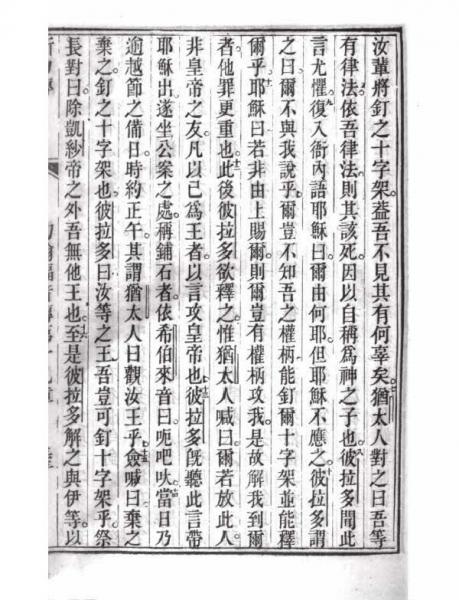 汝輩將釘之十字架。蓋吾不見其有何辜矣。猶太人對之曰吾等
有律法。依吾律法則其該死。因以自稱爲神之子也。彼拉多聞此
言尤懼。復入衙內語耶穌曰。爾由何耶。但耶穌不應之。彼拉多謂
之曰爾不與我說乎。爾豈不知吾之權柄能釘爾十字架並能釋
爾乎。耶穌曰若非由上賜爾。則爾豈有權柄攻我。是故解我到爾
者他罪更重也。此後彼拉多欲釋之。惟猶太人喊曰。爾若放此人。
非皇帝之友。凡以已爲王者。以言攻皇帝也。彼拉多旣聽此言帶
耶穌出。遂坐公案之處。稱鋪石者。依希伯來音曰。呃吧𠯈。當日乃
逾越節之備日。時約正午。其謂猶太人曰觀汝王乎。僉喊曰棄之
棄之。釘之十字架也。彼拉多曰汝等之王吾豈可釘十字架乎。祭
長對曰。除凱紗帝之外吾無他王也。至是彼拉多解之與伊等。以